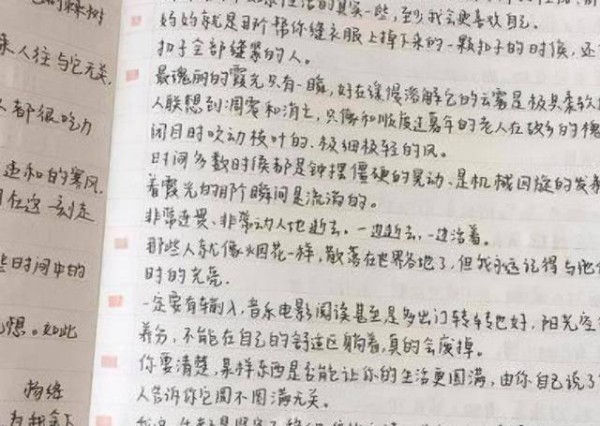 来人往与它无关,
人都很吃力
违和的寒风,
些时间中的
想。如此
妈妈就是那个帮你缝衣服上掉下来的一颗扣子的时候,还
扣子全部缝紧的人。
最瑰丽的霞光只有一瞬,好在缓慢溶解它的云雾是极具柔软
人联想到凋零和消亡,只像和顺度过嘉年的老人在故乡的槐
闭目时吹动枝叶的、极细极轻的风。
时间多数时候都是钟摆僵硬的晃动、是机械回旋的发条
着霞光的那个瞬间是流淌的。
非常连贯、非常动人地逝去,一边逝去,一边活着。
那些人就像烟花一样,散落在世界各地了,但我永远记得与他
时的光亮.
一定要有输入,音乐电影阅读甚至是多出门转转也好,阳光空
养分,不能在自己的舒适区躺着,真的会废掉。
你要清楚,某样东西是否能让你的生活更圆满,由你自己说了
人告诉你它圆不圆满无关。